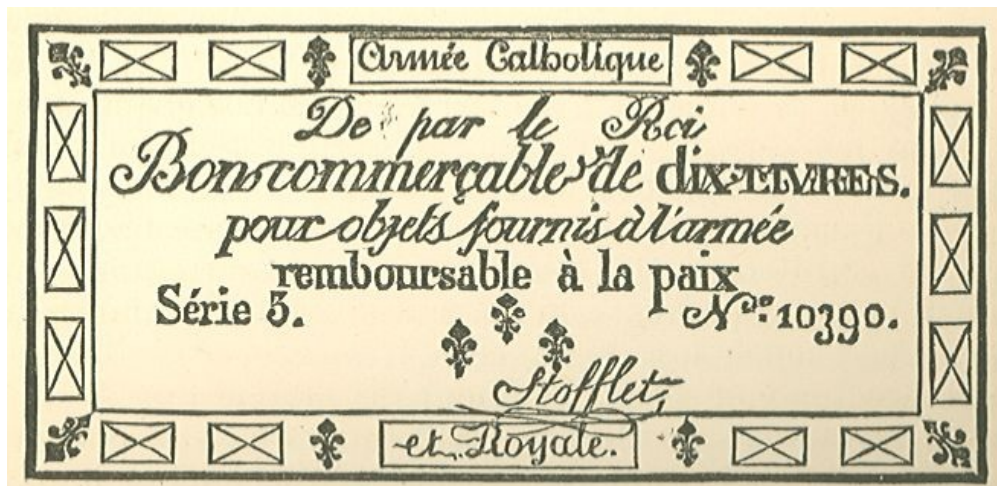 Armée Catholique
De par le Roi
Bon commerçable de dix LIVRES.
pour objets fournis à l'armée
remboursable à la paix
Série 3. No. 10390.
Stofflet,
et Royale.